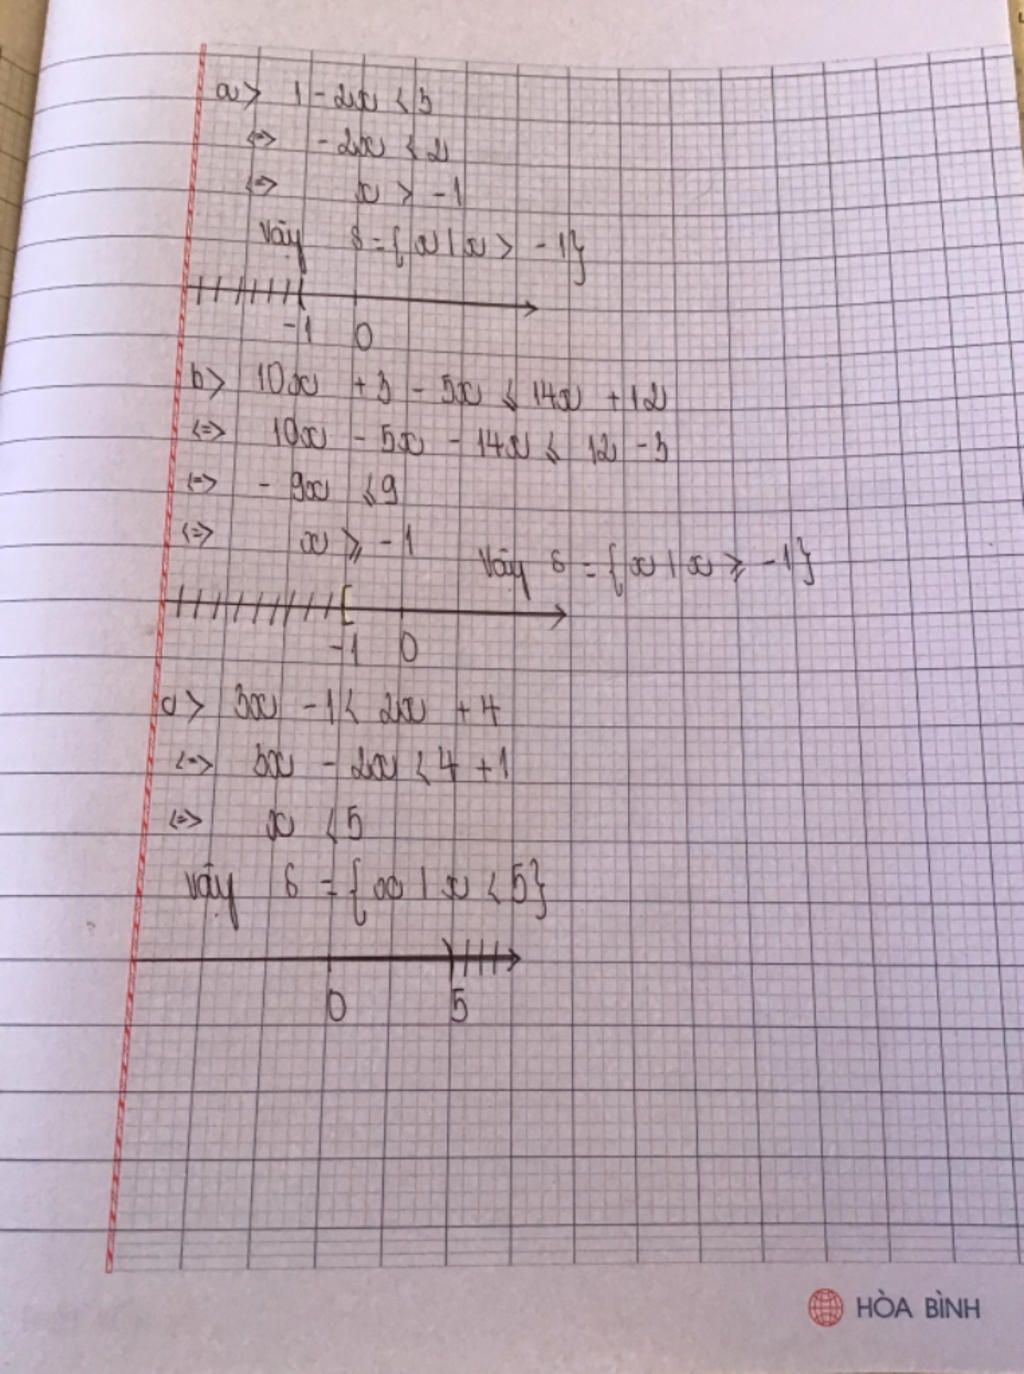 a> 1 - 2x < 3
<=> - 2x < 2
<=> x > -1
Vậy S = {x | x > -1}
-1 0
b> 10x + 3 - 5x ≤ 14x + 12
<=> 10x - 5x - 14x ≤ 12 - 3
<=> - 9x ≤ 9
<=> x ≥ -1 Vậy S = {x | x ≥ -1}
-1 0
c> 3x - 1 < 2x + 4
<=> 3x - 2x < 4 + 1
<=> x < 5
Vậy S = {x | x < 5}
0 5
HÒA BÌNH